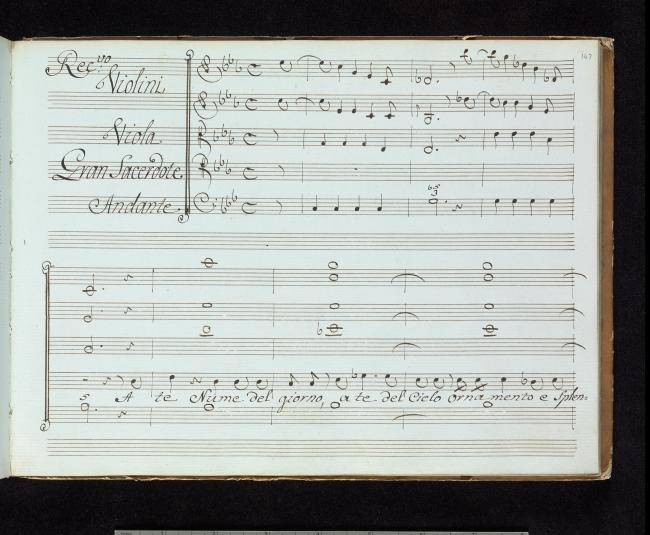 Rec.vo
Violini
Viola
Gran Sacerdote
Andante
A te Nume del giorno, a te del Cielo Ornamento e Splen=